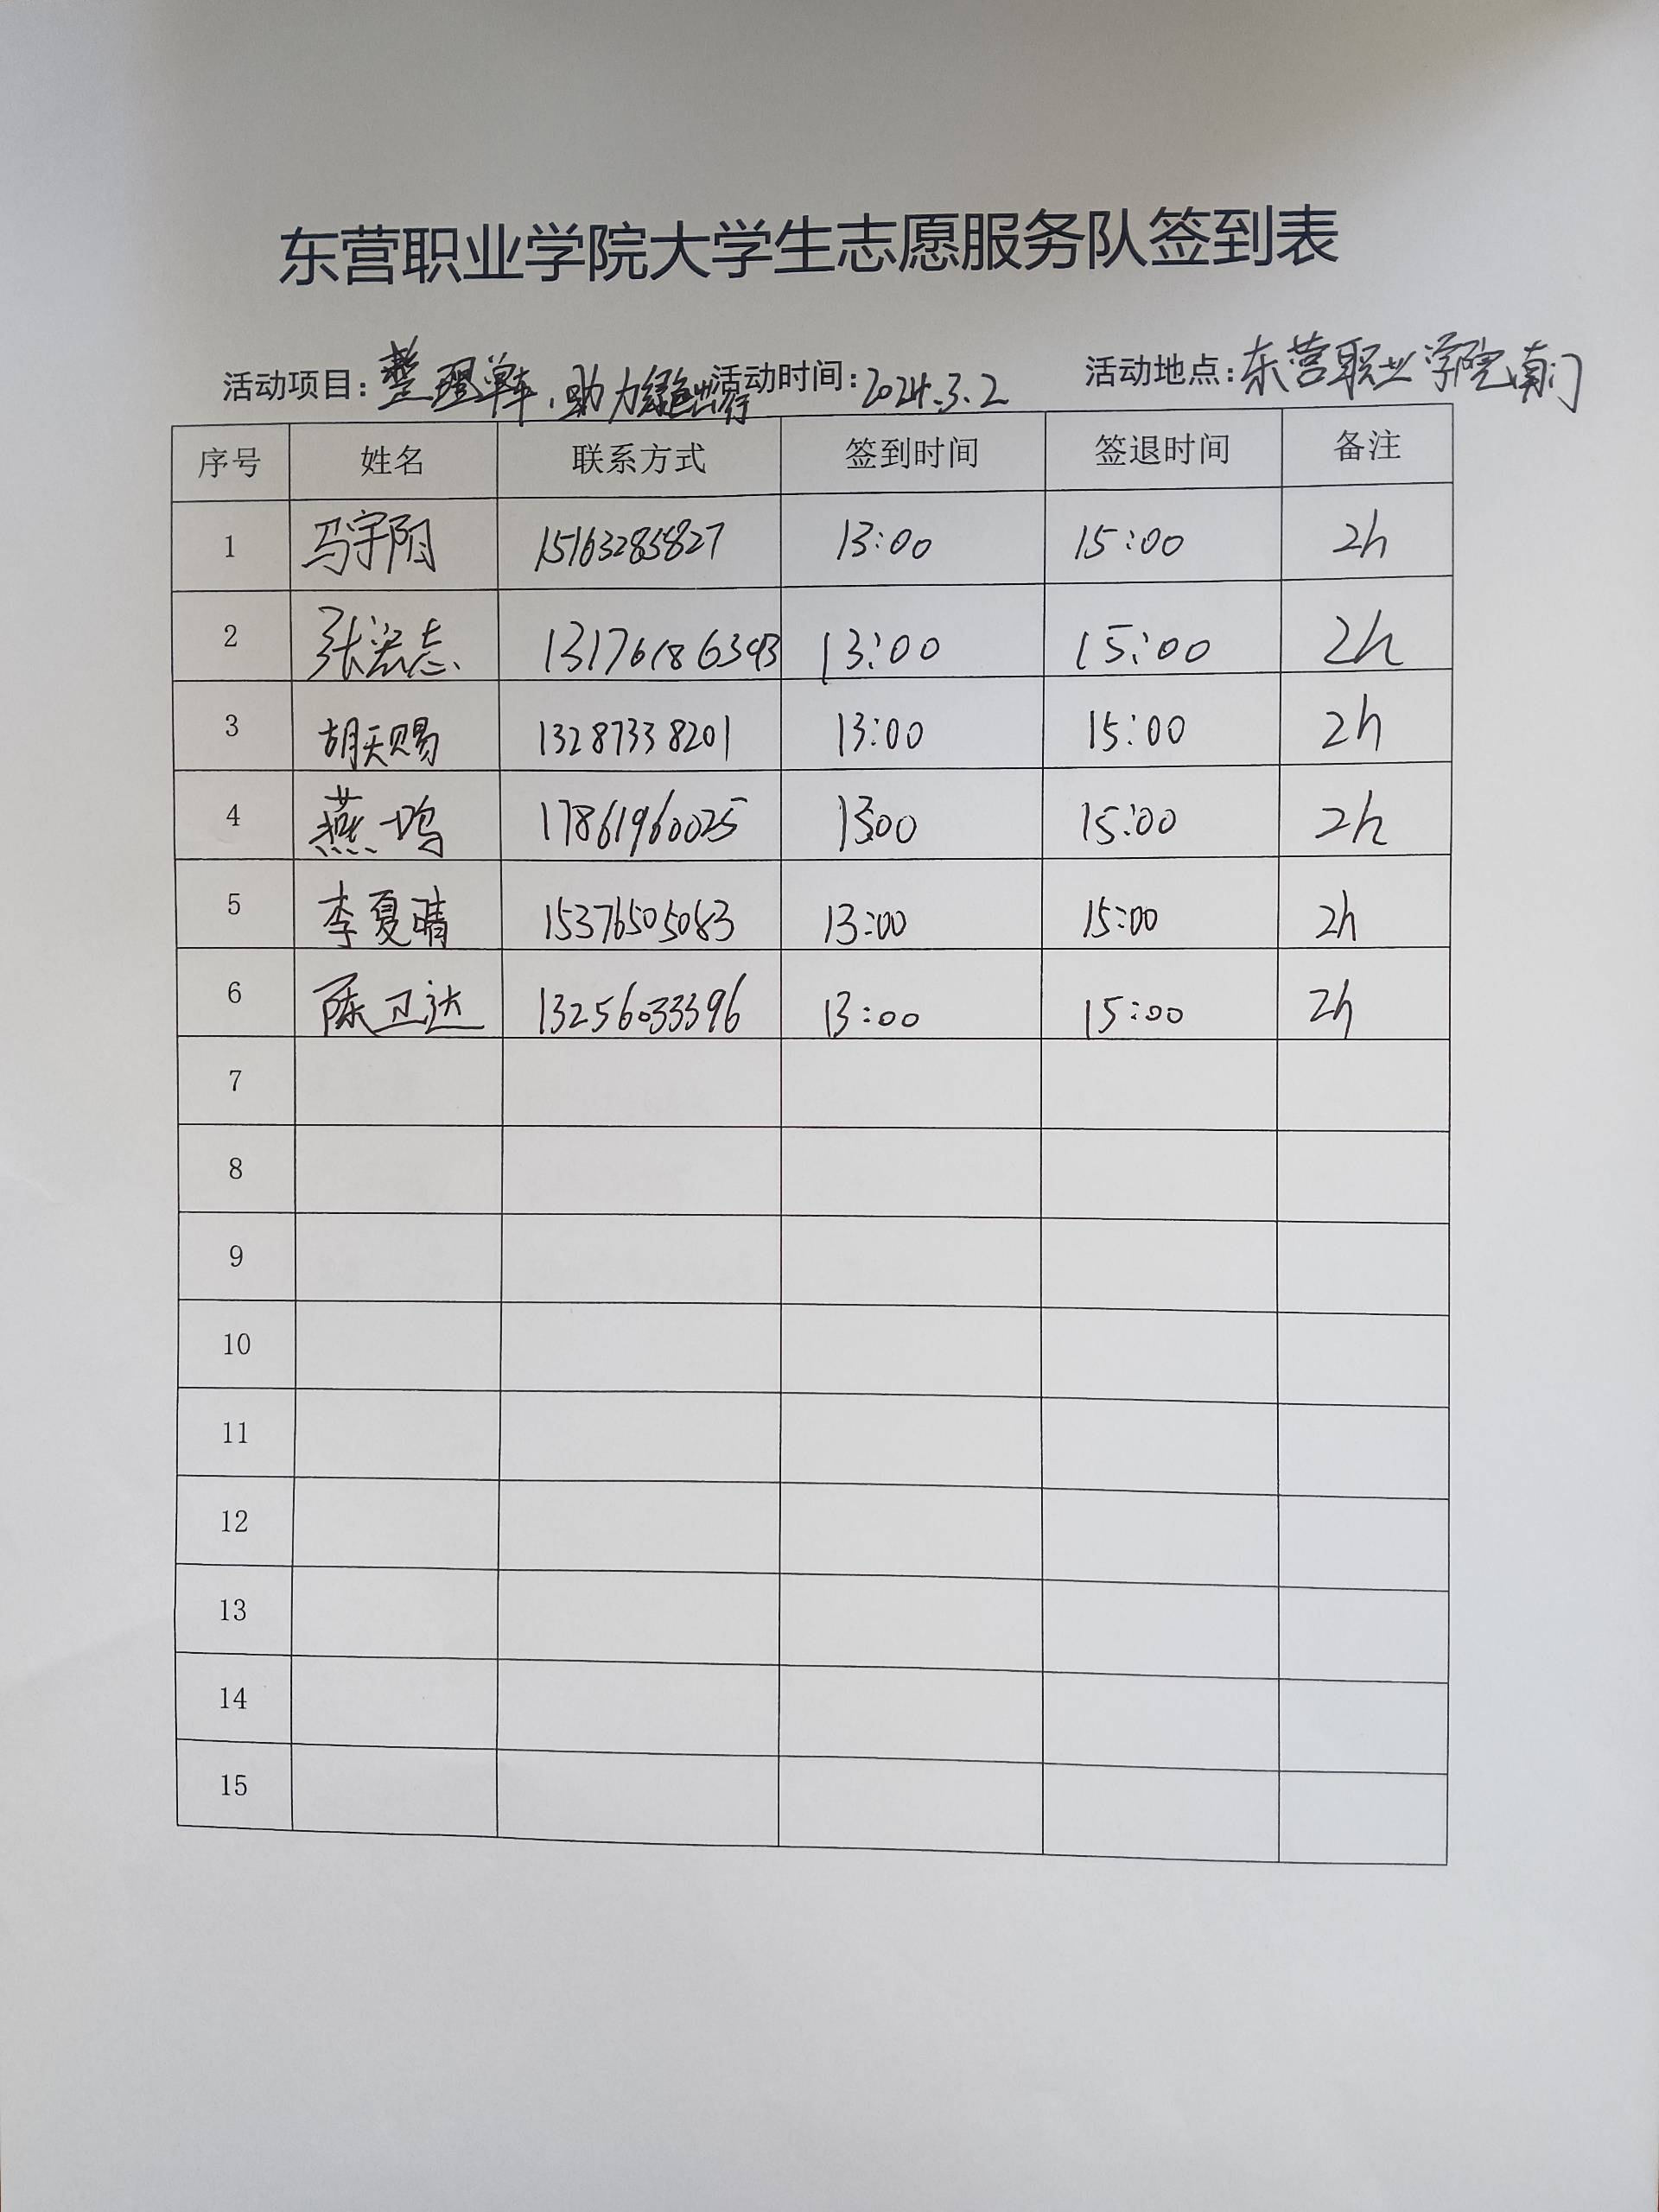 东营职业学院大学生志愿服务队签到表
活动项目：整理单车，助力绿色出行 活动时间：2024.3.2 活动地点：东营职业学院南门
序号 姓名 联系方式 签到时间 签退时间 备注
1 马宇阳 15163285827 13:00 15:00 2h
2 张宏志 13176186393 13:00 15:00 2h
3 胡天赐 13287338201 13:00 15:00 2h
4 燕一鸣 17861960025 13:00 15:00 2h
5 李夏晴 15376505083 13:00 15:00 2h
6 陈卫达 13256033396 13:00 15:00 2h
7
8
9
10
11
12
13
14
15